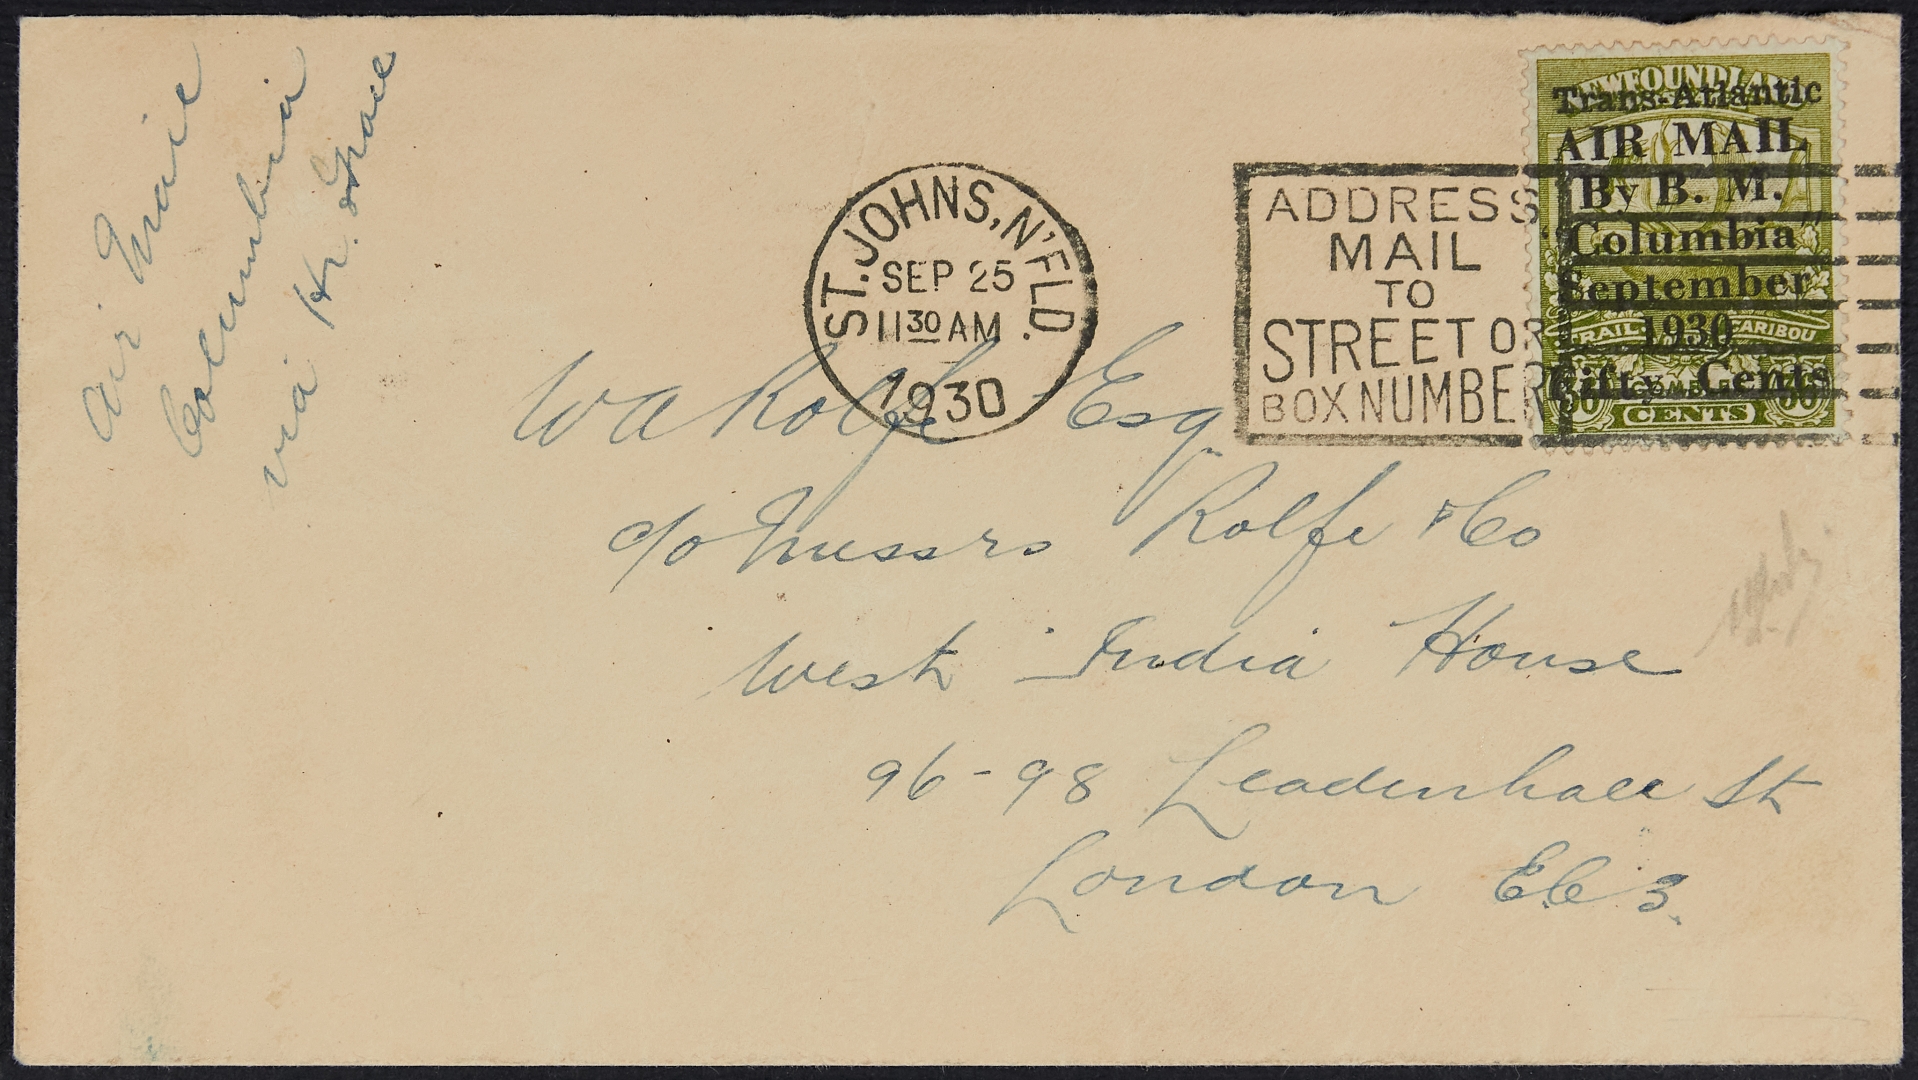 Air Mail
Columbia
via Hr. Grace
ST. JOHNS, N'FLD.
SEP 25
11 30 AM
1930
ADDRESS
MAIL
TO
STREET OR
BOX NUMBER
NEWFOUNDLAND
Trans-Atlantic
AIR MAIL
By B. M.
"Columbia"
September
1930
Fifty Cents
TRAIL CARIBOU
36 36
CENTS
W A Rolfe Esq
c/o Messrs Rolfe & Co
West India House
96-98 Leadenhall St
London E.C 3.